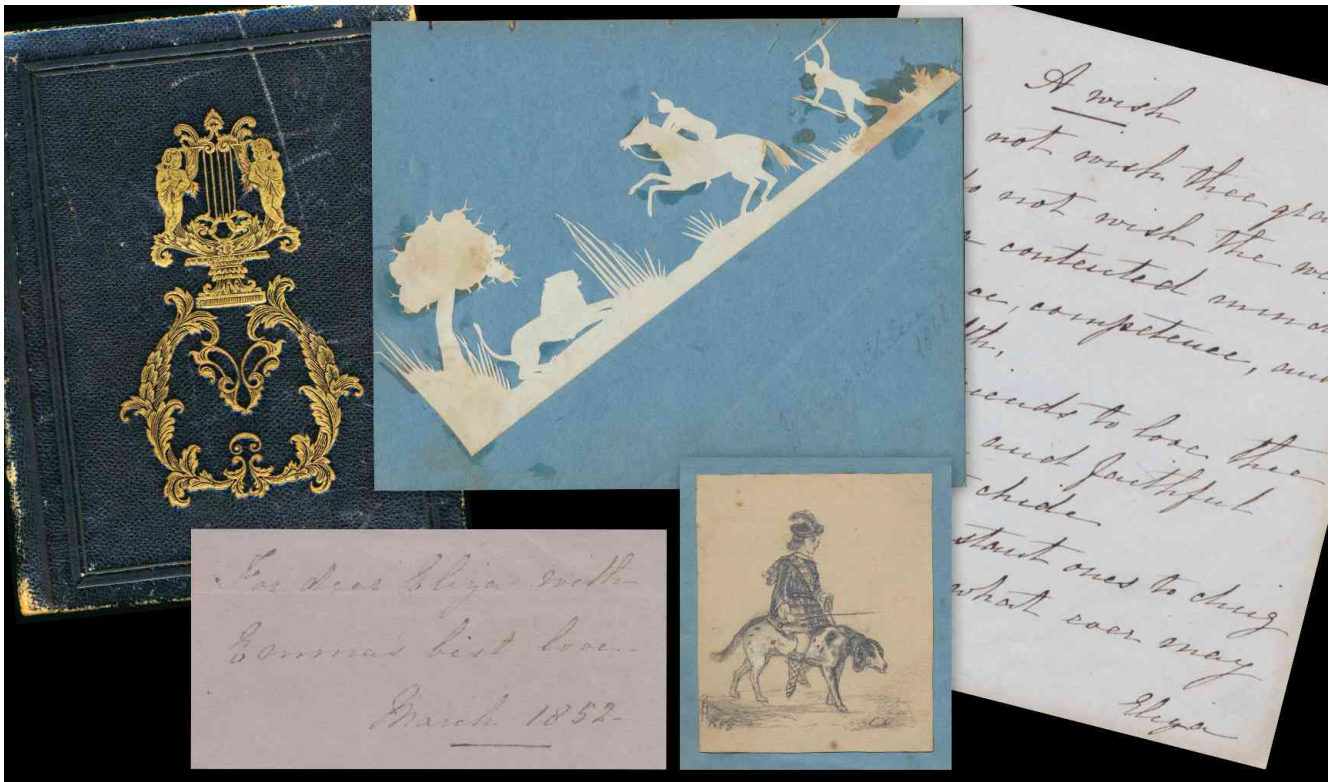 For dear Eliza with
Emmas best love
March 1852
A wish
not wish thee
not wish the
contented
competence, and
to love thee
and faithful
chide
ones to cling
what ever may
Eliza